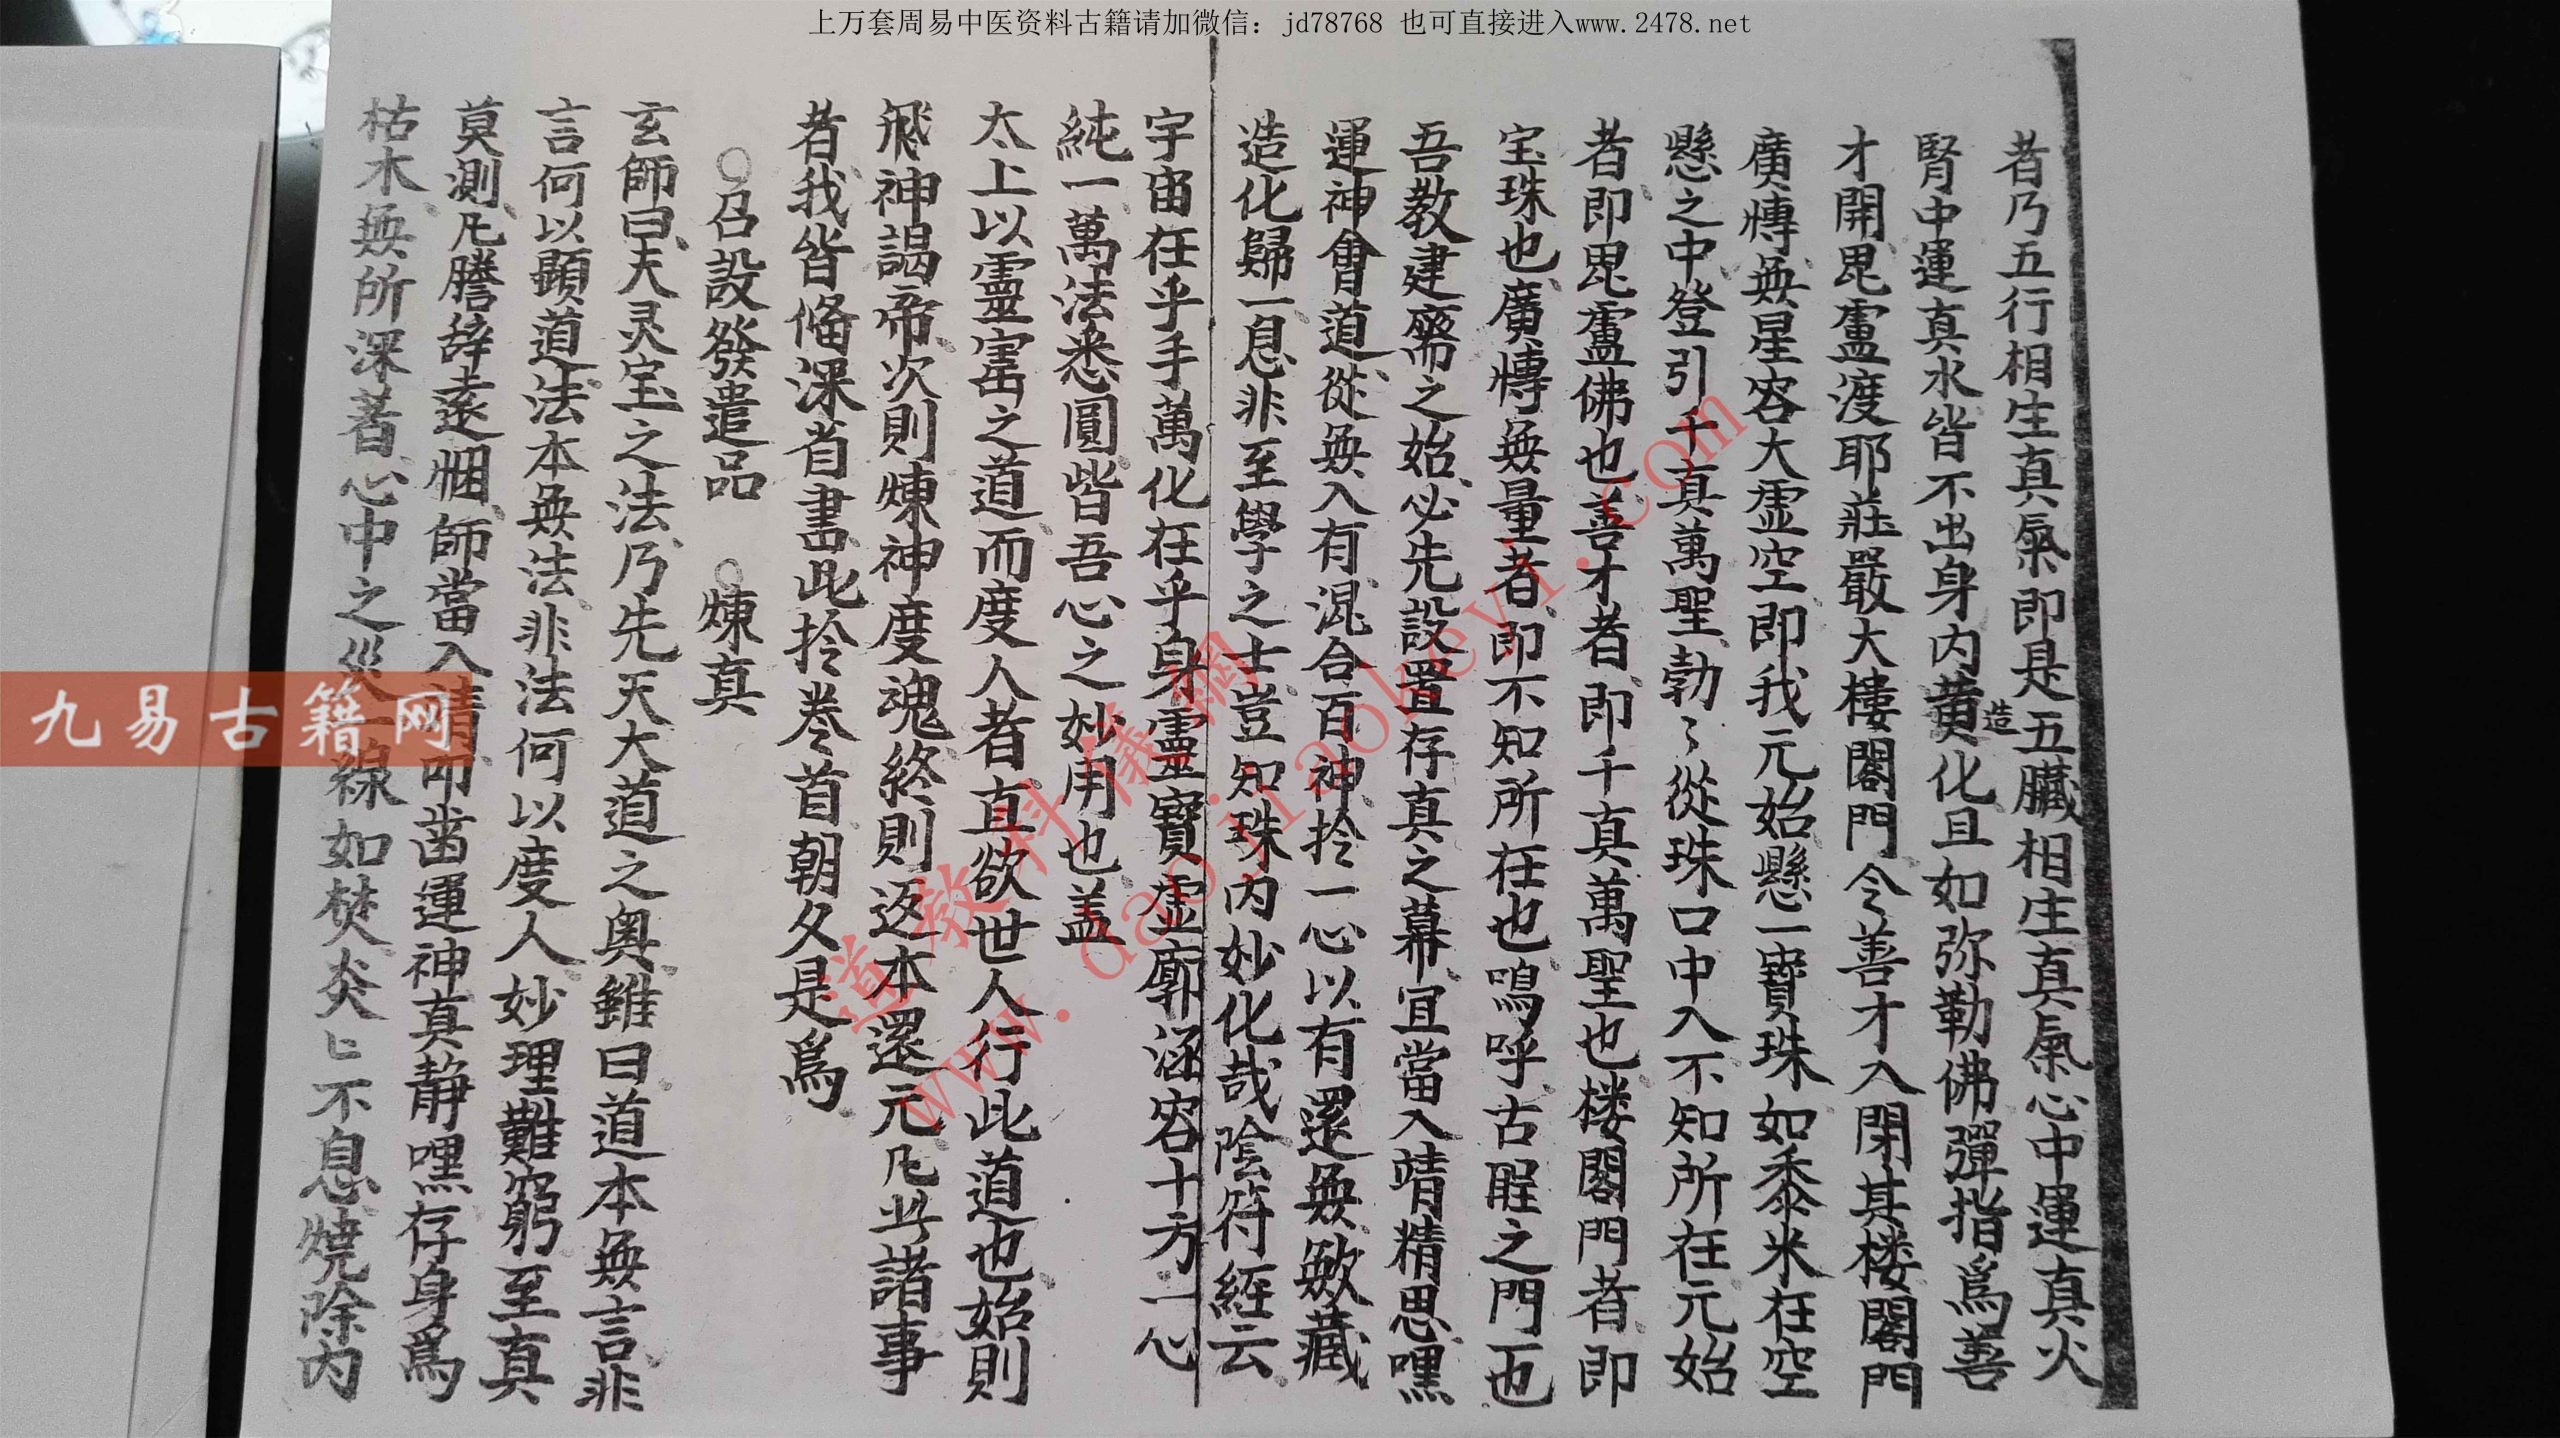 上万套周易中医资料古籍请加微信：jd78768 也可直接进入www.2478.net
者乃五行相生真氣即是五臟相生真氣心中運真火
腎中運真水皆不出身内黄造化且如弥勒佛彈指爲善
才開毘盧渡耶莊嚴大樓閣門令善才入閉其楼閣門
廣博無星容大虚空即我元始懸一寶珠如黍米在空
懸之中登引千真萬聖勃〻從珠口中入不知所在元始
者即毘盧佛也善才者即千真萬聖也楼閣門者即
宝珠也廣博無量者即不知所在也嗚呼古聖之門也
吾教建齋之始必先設置存真之幕宜當入靖精思嘿
運神會道從無入有混合百神於一心以有還無斂藏
造化歸一息非至學之士豈知珠内妙化哉陰符経云
宇宙在乎手萬化在乎身靈寶虚廓涵容十方一心
純一萬法悉圓皆吾心之妙用也盖
太上以靈寶之道而度人者直欲世人行此道也始則
飛神謁帝次則煉神度魂終則返本還元凡此諸事
者我皆俻深省書此於卷首朝夕是爲
○召設發遣品　○煉真
玄師曰夫灵宝之法乃先天大道之奥雖曰道本無言非
言何以顕道法本無法非法何以度人妙理難窮至真
莫測凡謄辞遠悃師當入靖叩齒運神真静嘿存身爲
枯木無所深著心中之災一線如焚炎〻不息燒除内
九易古籍网
道教科儀網
www.daojiaokeyi.com